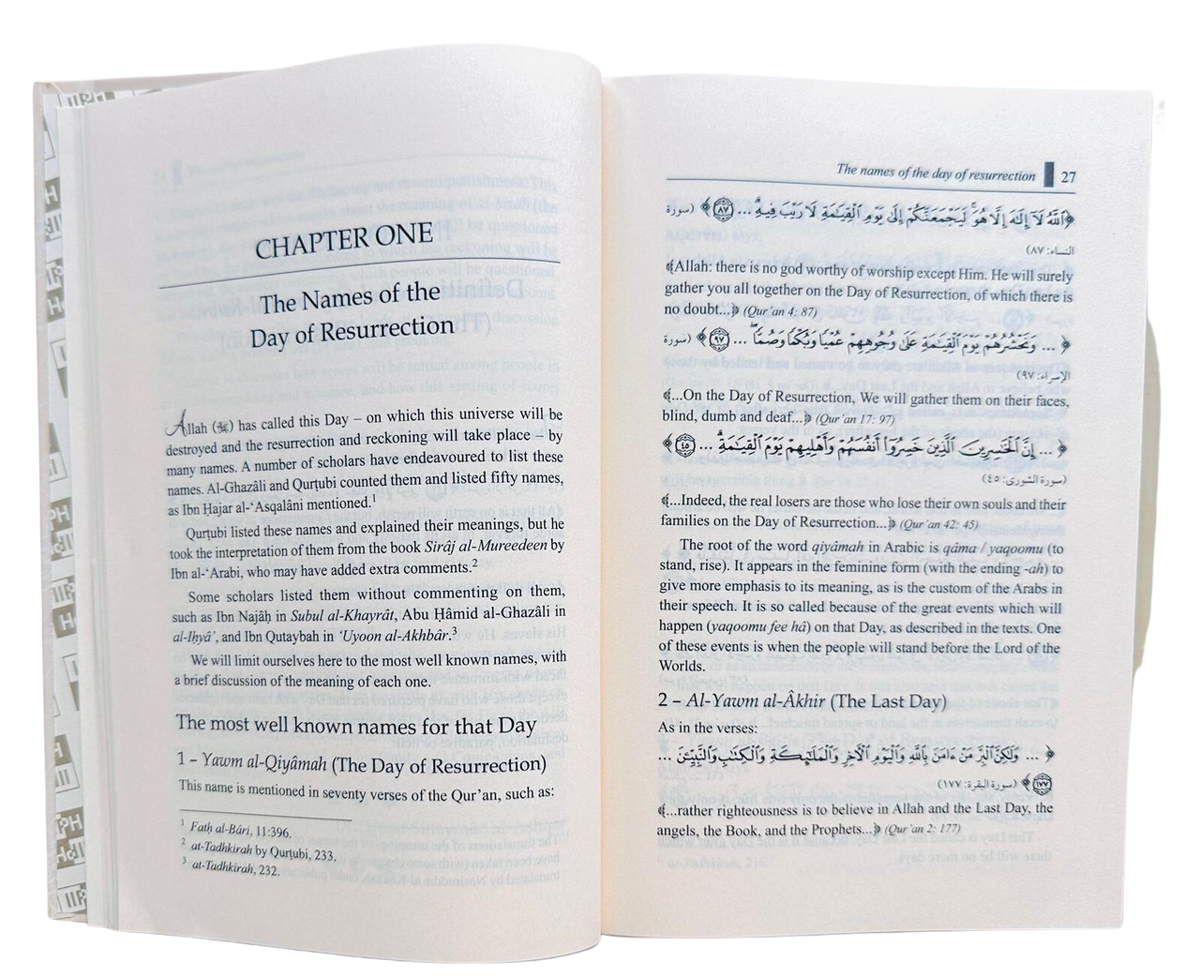 CHAPTER ONE
The Names of the
Day of Resurrection
Allah (ﷻ) has called this Day – on which this universe will be
destroyed and the resurrection and reckoning will take place – by
many names. A number of scholars have endeavoured to list these
names. Al-Ghazâli and Qurṭubi counted them and listed fifty names,
as Ibn Ḥajar al-‘Asqalâni mentioned.¹
Qurṭubi listed these names and explained their meanings, but he
took the interpretation of them from the book Sirâj al-Mureedeen by
Ibn al-‘Arabi, who may have added extra comments.²
Some scholars listed them without commenting on them,
such as Ibn Najâḥ in Subul al-Khayrât, Abu Ḥâmid al-Ghazâli in
al-Iḥyâ’, and Ibn Qutaybah in ‘Uyoon al-Akhbâr.³
We will limit ourselves here to the most well known names, with
a brief discussion of the meaning of each one.
The most well known names for that Day
1 – Yawm al-Qiyâmah (The Day of Resurrection)
This name is mentioned in seventy verses of the Qur’an, such as:
¹ Fatḥ al-Bâri, 11:396.
² at-Tadhkirah by Qurṭubi, 233.
³ at-Tadhkirah, 232.
The names of the day of resurrection 27
﴿ٱللَّهُ لَآ إِلَٰهَ إِلَّا هُوَۚ لَيَجْمَعَنَّكُمْ إِلَىٰ يَوْمِ ٱلْقِيَٰمَةِ لَا رَيْبَ فِيهِۗ ... ٨٧﴾ (سورة
النساء: ٨٧)
﴾Allah: there is no god worthy of worship except Him. He will surely
gather you all together on the Day of Resurrection, of which there is
no doubt...﴿ (Qur’an 4: 87)
﴿... وَنَحْشُرُهُمْ يَوْمَ ٱلْقِيَٰمَةِ عَلَىٰ وُجُوهِهِمْ عُمْيًا وَبُكْمًا وَصُمًّاۖ ... ٩٧﴾ (سورة
الإسراء: ٩٧)
﴾...On the Day of Resurrection, We will gather them on their faces,
blind, dumb and deaf...﴿ (Qur’an 17: 97)
﴿... إِنَّ ٱلْخَٰسِرِينَ ٱلَّذِينَ خَسِرُوٓا۟ أَنفُسَهُمْ وَأَهْلِيهِمْ يَوْمَ ٱلْقِيَٰمَةِۗ ... ٤٥﴾
(سورة الشورى: ٤٥)
﴾...Indeed, the real losers are those who lose their own souls and their
families on the Day of Resurrection...﴿ (Qur’an 42: 45)
The root of the word qiyâmah in Arabic is qâma / yaqoomu (to
stand, rise). It appears in the feminine form (with the ending -ah) to
give more emphasis to its meaning, as is the custom of the Arabs in
their speech. It is so called because of the great events which will
happen (yaqoomu fee hâ) on that Day, as described in the texts. One
of these events is when the people will stand before the Lord of the
Worlds.
2 – Al-Yawm al-Âkhir (The Last Day)
As in the verses:
﴿... وَلَٰكِنَّ ٱلْبِرَّ مَنْ ءَامَنَ بِٱللَّهِ وَٱلْيَوْمِ ٱلْءَاخِرِ وَٱلْمَلَٰٓئِكَةِ وَٱلْكِتَٰبِ وَٱلنَّبِيِّۦنَ ...
١٧٧﴾ (سورة البقرة: ١٧٧)
﴾...rather righteousness is to believe in Allah and the Last Day, the
angels, the Book, and the Prophets...﴿ (Qur’an 2: 177)